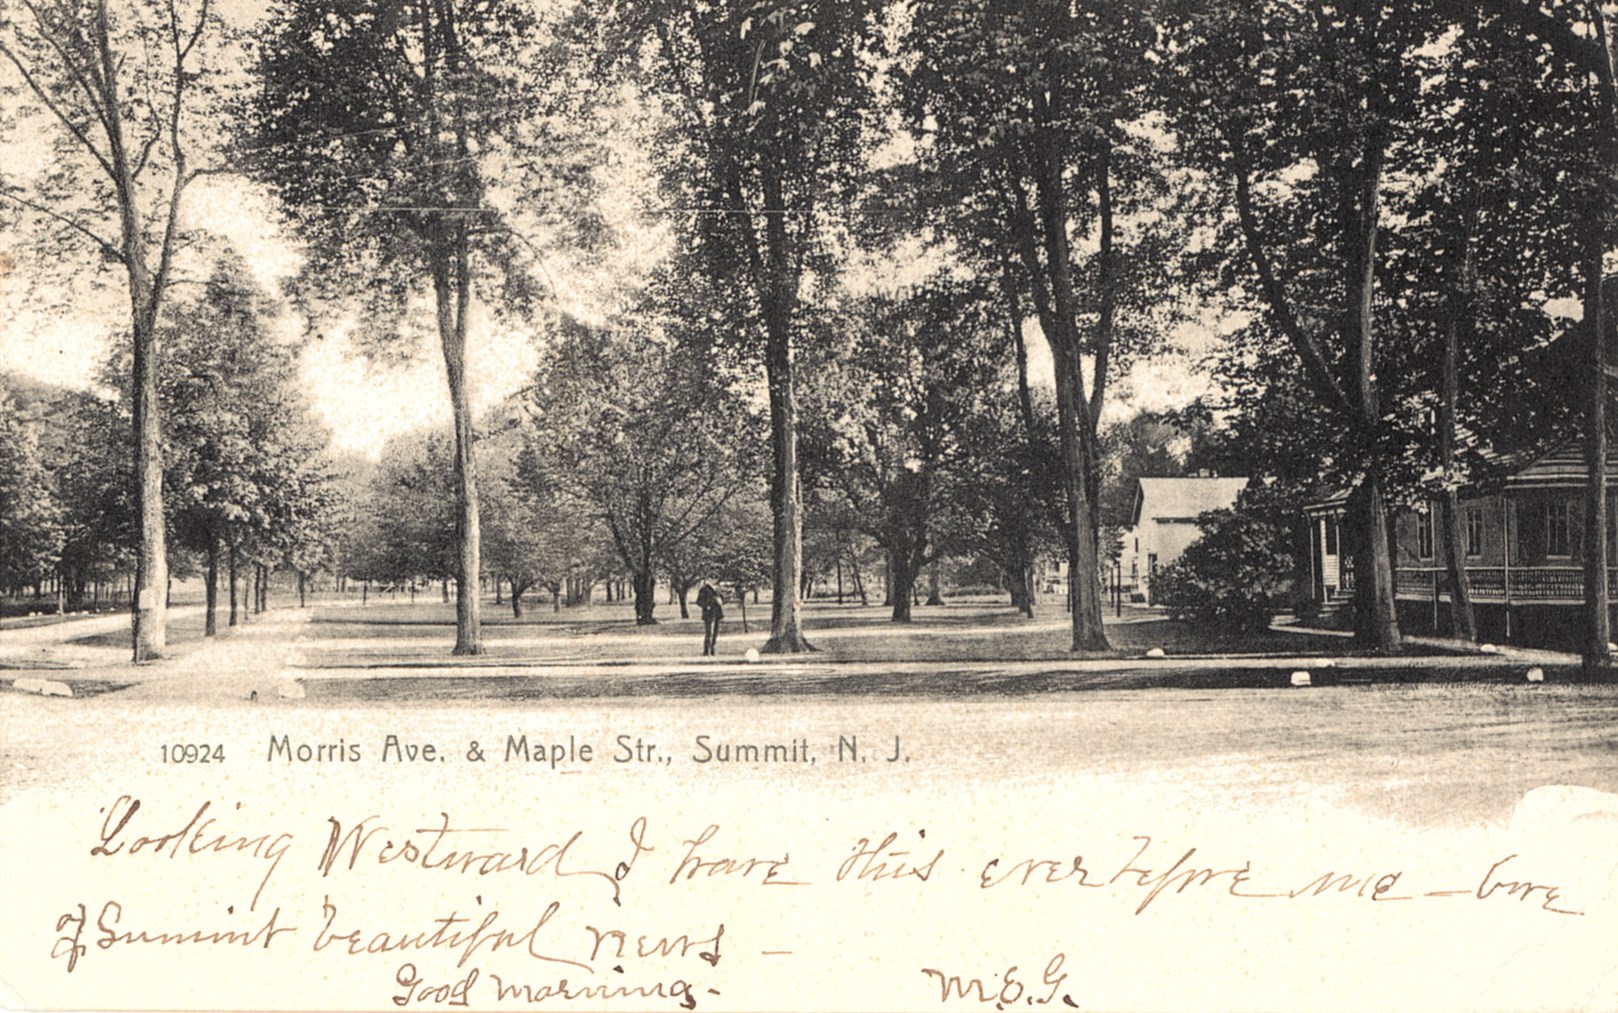 10924 Morris Ave. & Maple Str., Summit, N. J.
Looking Westward I have this ever before me — One
of Summit beautiful views —
Good morning -
M.E.G.